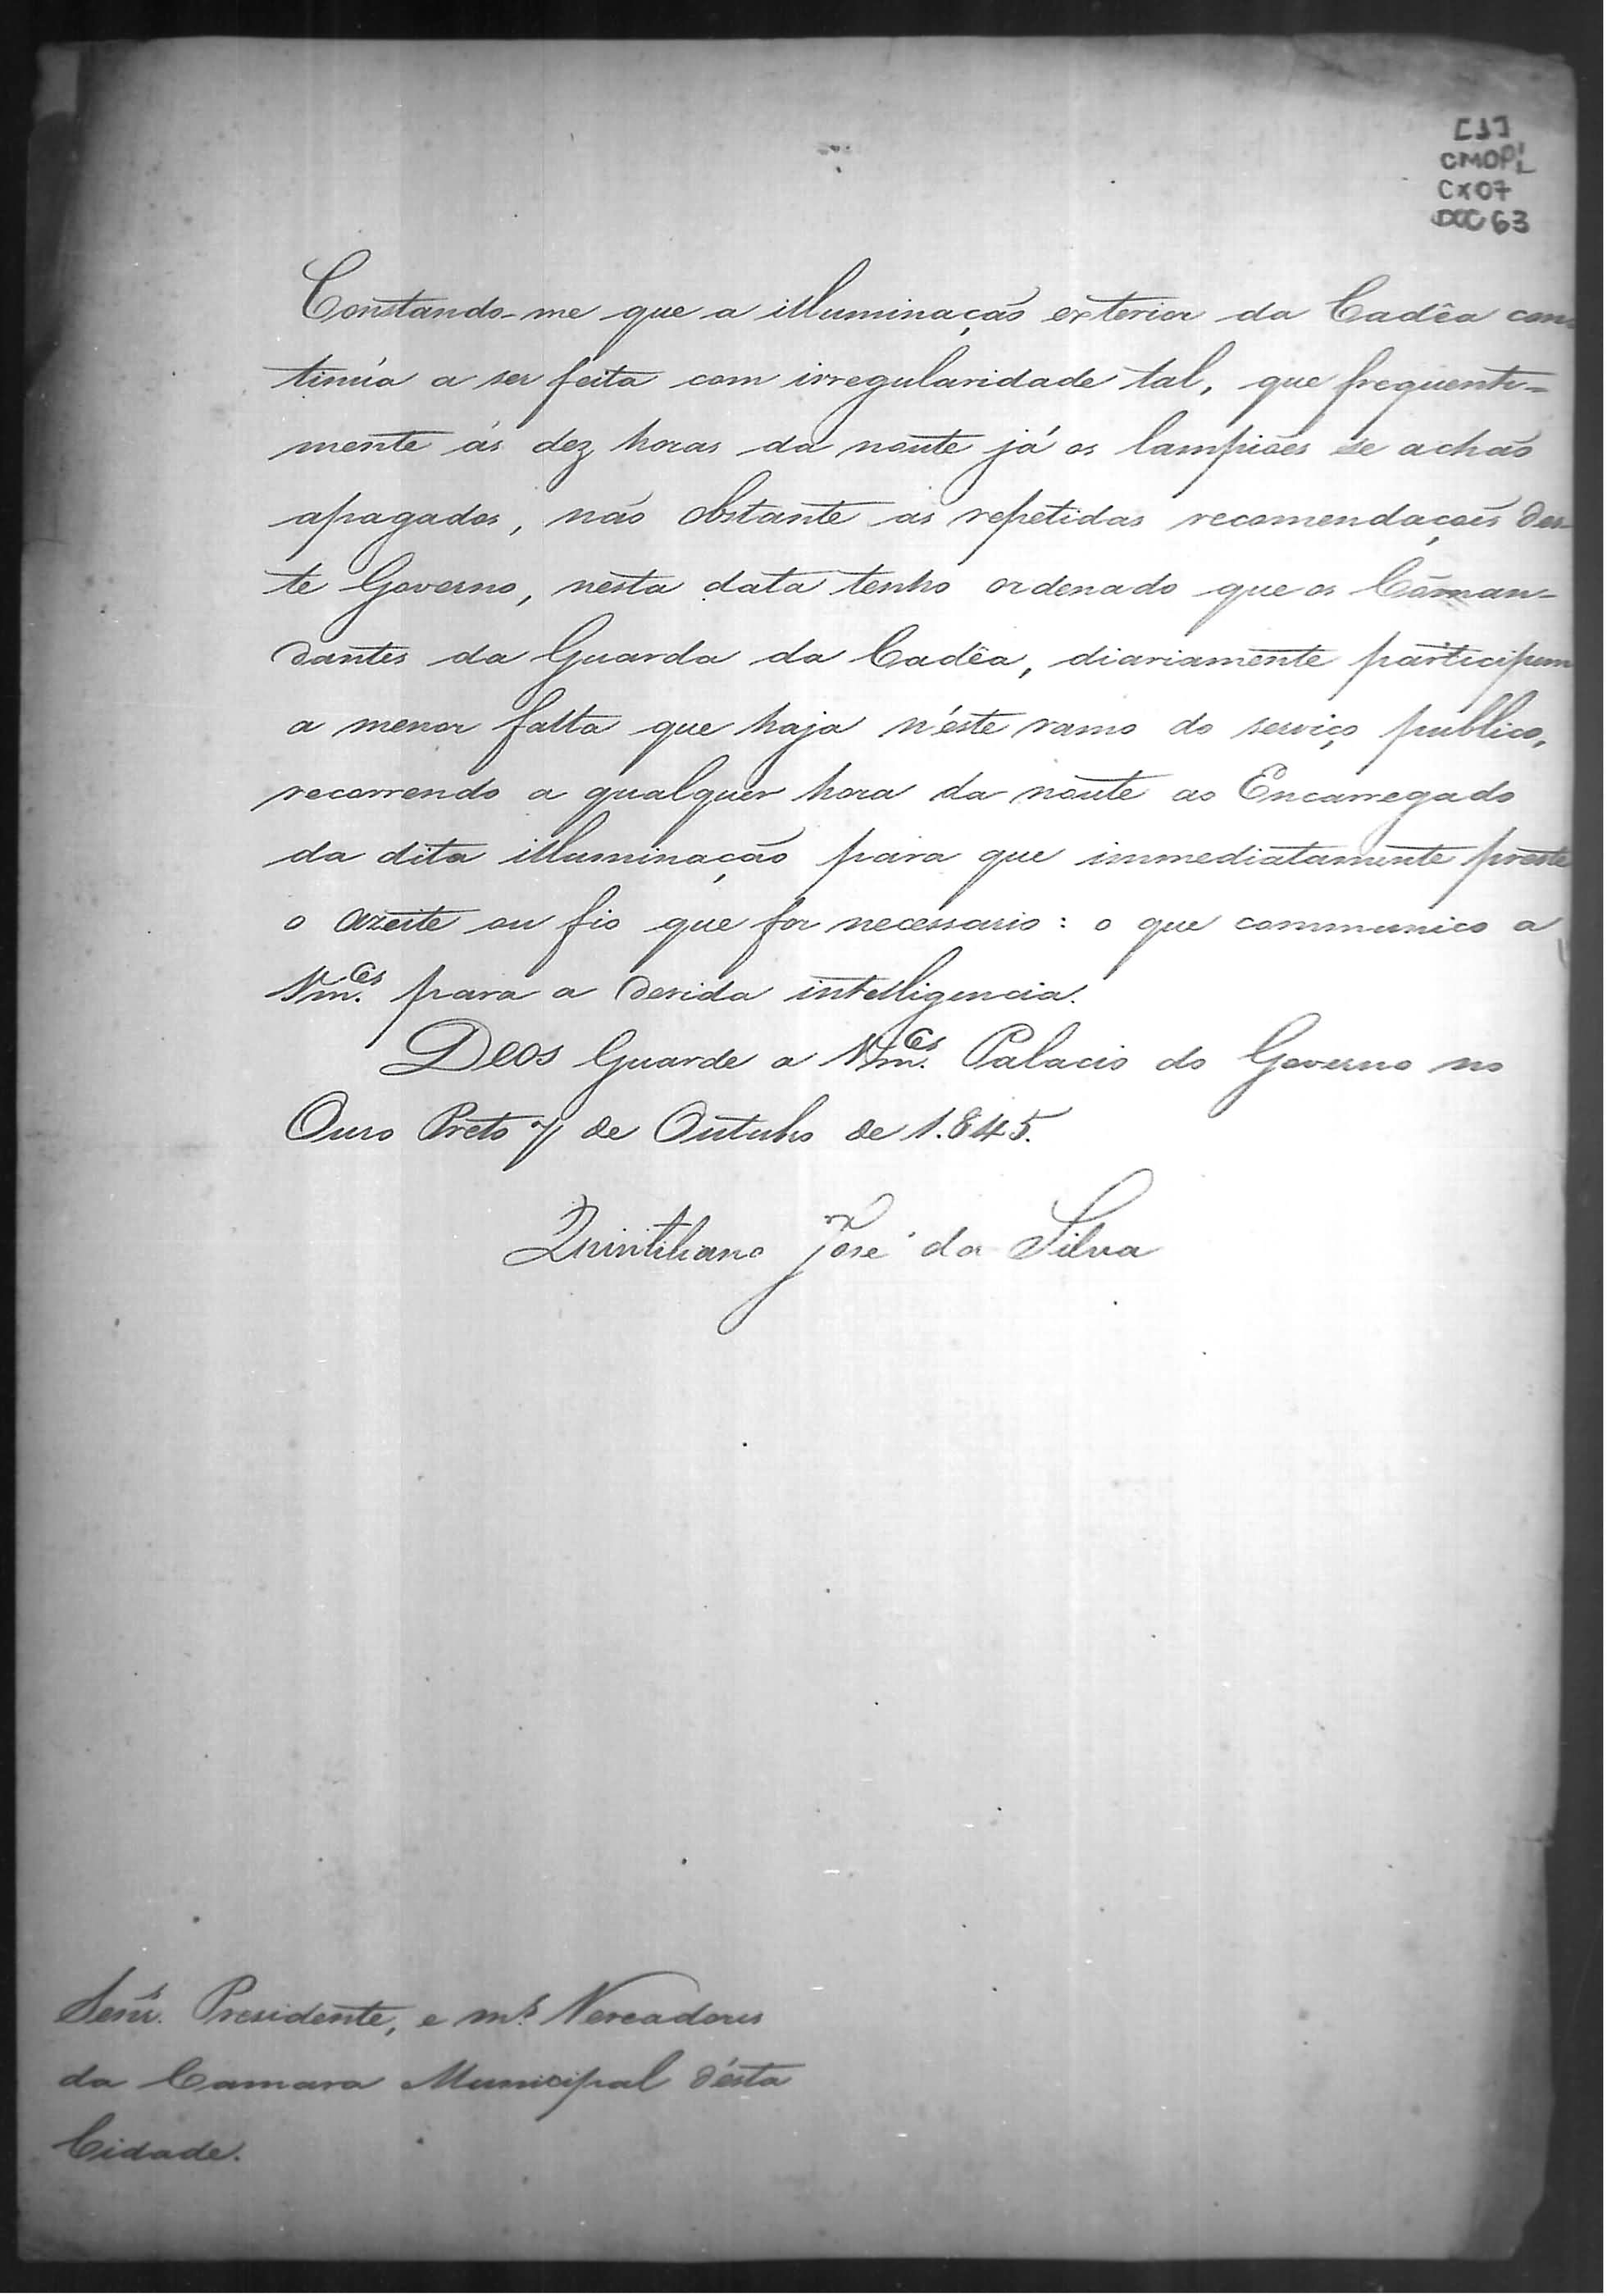 [1]
CMOPL
CX07
DOC 63
Constando-me que a illuminação exterior da Cadêa con
tinúa a ser feita com irregularidade tal, que frequente-
mente ás dez horas da noute já os lampiões se achão
apagados, não obstante as repetidas recomendações des-
te Governo, nesta data tenho ordenado que os Cōman-
dantes da Guarda da Cadêa, diariamente participem
a menor falta que haja n'éste ramo do serviço publico,
recorrendo a qualquer hora da noute ao Encarregado
da dita illuminação para que immediatamente preste
o azeite ou fio que for necessario: o que communico a
Vm.ces para a devida intelligencia.
Deos Guarde a Vm.ces Palacio do Governo no
Ouro Preto 7 de Outubro de 1.845.
Quintiliano José da Silva
Senr.s Presidente, e m.s Vereadores
da Camara Municipal d'ésta
Cidade.